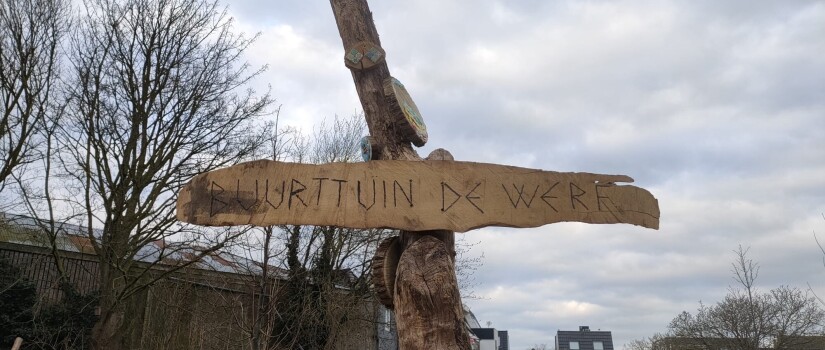 BUURTTUIN DE WERF